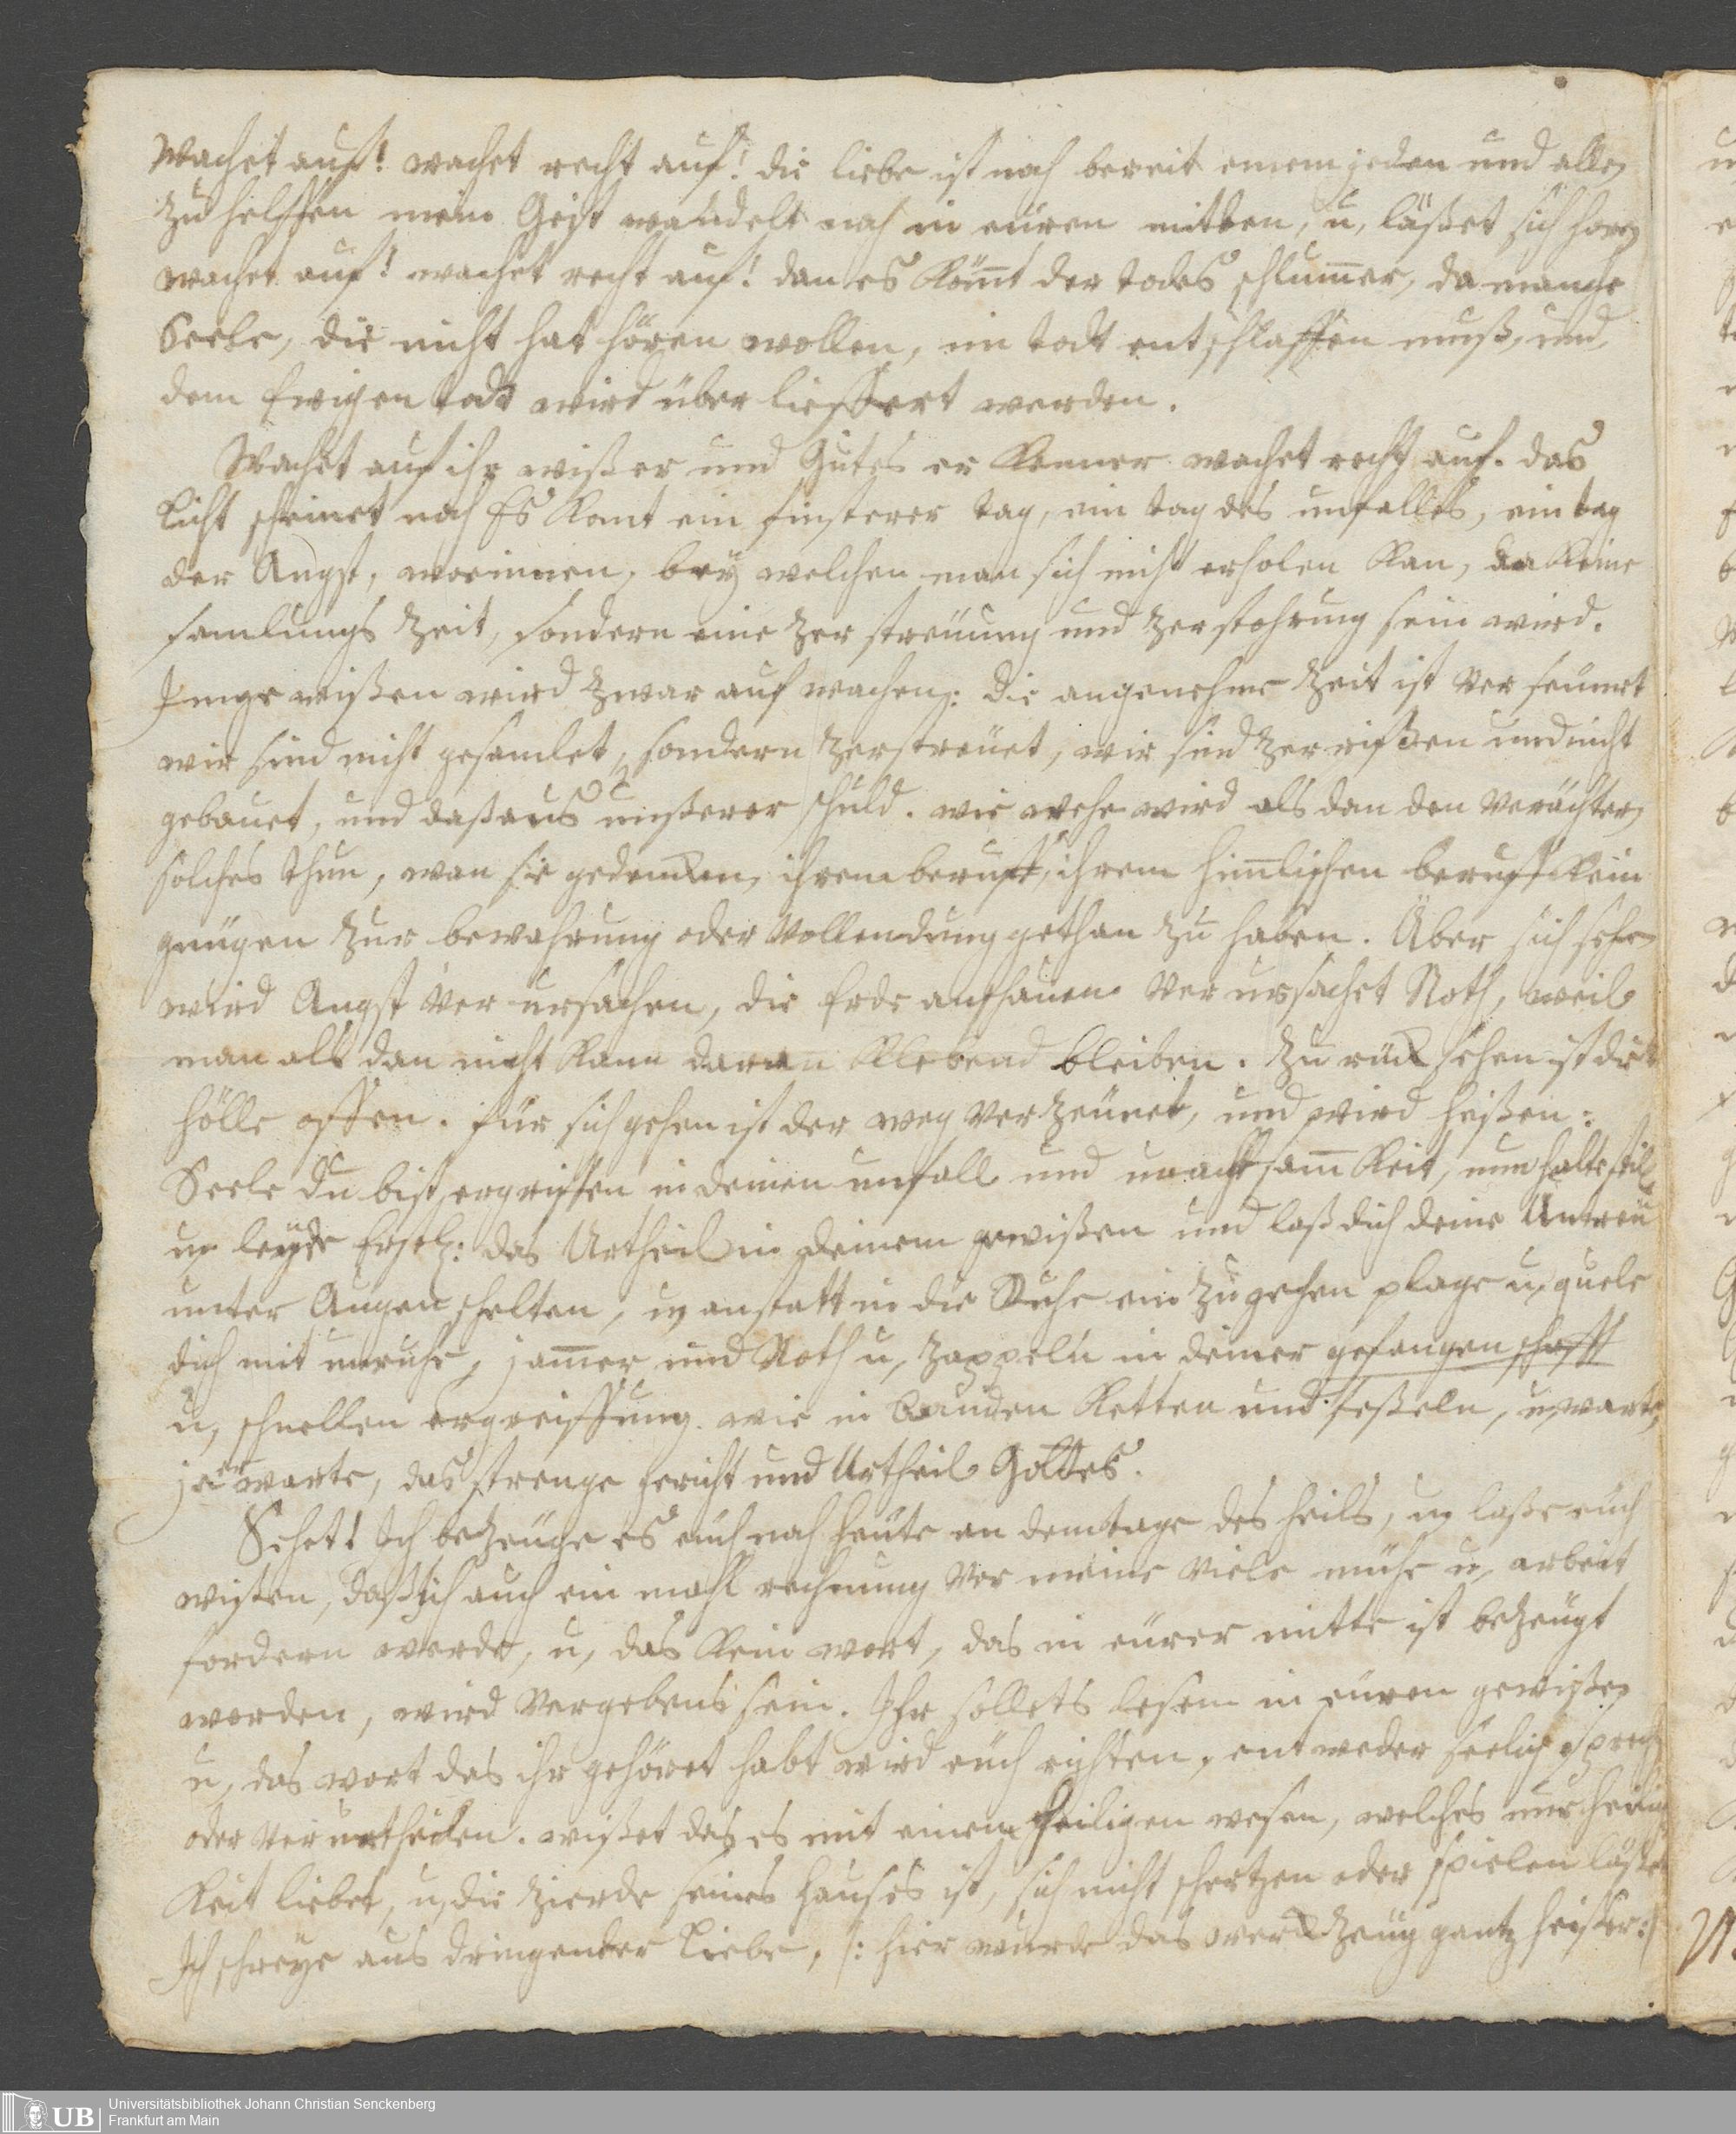 Wachet auf! wachet recht auf! die liebe ist noch bereit einem jeden und allen
zu helffen mein Geist wandelt noch in euren mitten, u, läßet sich horen
wachet auf! wachet recht auf! dan es kom̄t der todes schlum̄er, da mange
Seele, die nicht hat hören wollen, im todt entschlaffen muß, und
dem Ewigen todt wird über lieffert werden.
Wachet auf ihr wißer und Gutes er kenner wachet recht auf. das
Licht scheinet noch Es komt ein finsterer tag, ein tag des unfalles, ein tag
der Angst, worinnen, bey welchen man sich nicht erholen kan, da keine
samlungs Zeit, sondern eine Zer streuung und Zerstohrung sein wird.
Im ge wißen wird Zwar auf wachen: die angenehme Zeit ist ver seumet
wir sind nicht gesamlet, sondern Zerstreuet, wir sind Zer rißen und nicht
gebauet, und daß aus unßerer schuld. wie wehe wird als dan den verächtern
solches thun, wan sie gedencken, ihrem beruff, ihrem him̄lischen beruff kein
gnügen zur bewahrung oder vollendung gethan zu haben. Über sich sehen
wird Angst ver ursachen, die Erde anschauen ver ursachet Noth, weil
man als dan nicht kann daran klebend bleiben. Zu rück sehen ist die
Hölle offen. für sich gehen ist der weg verzeunet, und wird heißen:
Seele du bist ergriffen in deinen unfall und unachtsam̄keit, nun halte still
u, leyde das Urtheil in deinem gewißen und laß dich deine Untreu
unter Augen schelten, u, anstatt in die Ruhe ein zu gehen plage u, quele
dich mit unruhe, jam̄er und Noth u, zappeln in deiner gefangenschafft
u, schnellen ergreiffung. wie in banden ketten und feßeln, u, warte,
ja erwarte, das strenge gericht und Urtheil Gottes.
Sehet! Ich bezeuge es euch noch heute an dem tage des heils, u, laße euch
wißen, daß ich auch ein mahl rechnung vor meine viele mühe u, arbeit
fordern werde, u, das kein wort, das in eurer mitte ist bezeugt
worden, wird vergebens sein. Ihr sollets lesen in euren gewißen
u, das wort das ihr gehöret habt wird euch richten, ent weder seelig sprechen
oder ver urtheilen. wißet das es mit einem heiligen wesen, welches nur heilig
keit liebet, u, die Zierde seines haußes ist, sich nicht schertzen oder spielen läßet
Ich schreye aus dringender Liebe, /: hier wurde das werckzeug gantz heißer:/
Universitätsbibliothek Johann Christian Senckenberg
Frankfurt am Main
UB